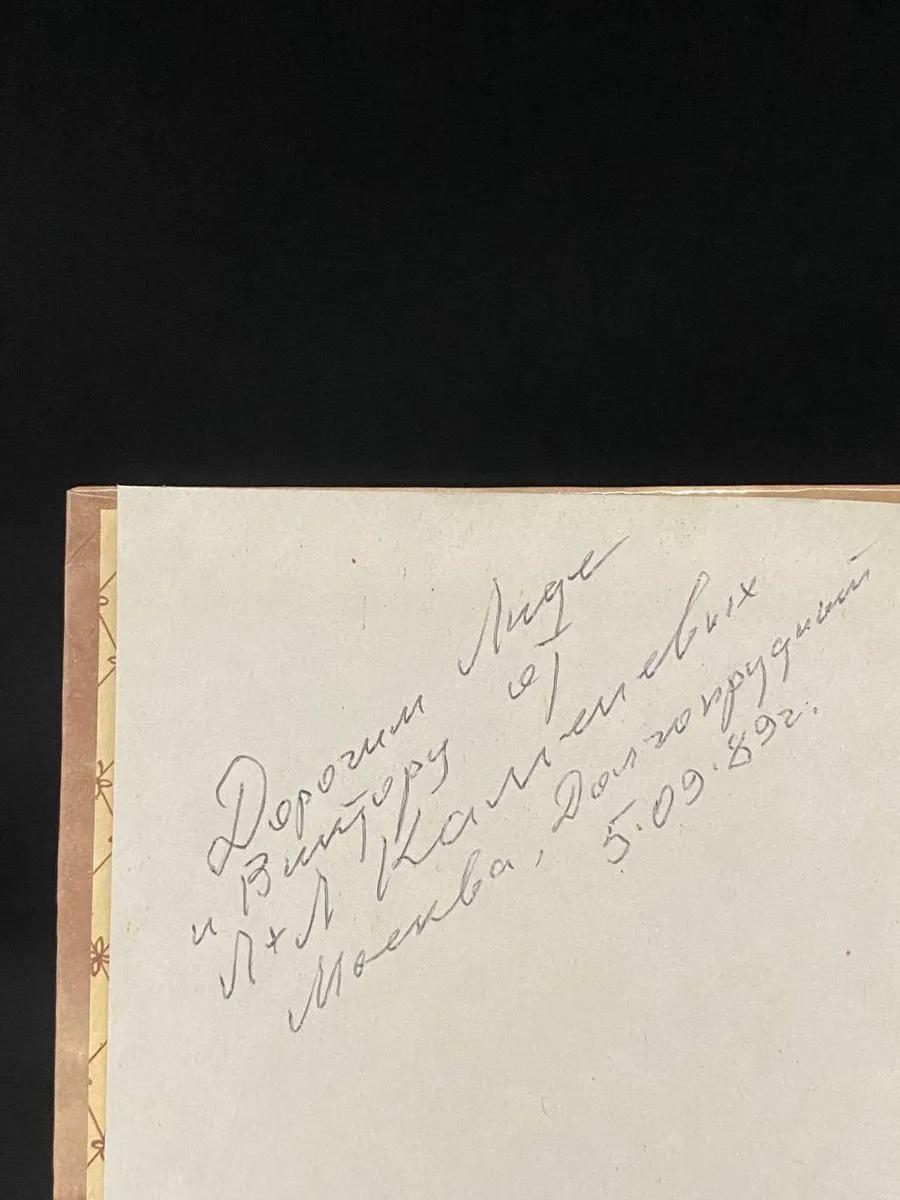 Дорогим Лиде
и Виктору от
Л+Л Каменевых
Москва, Долгопрудный
5.09.89г.